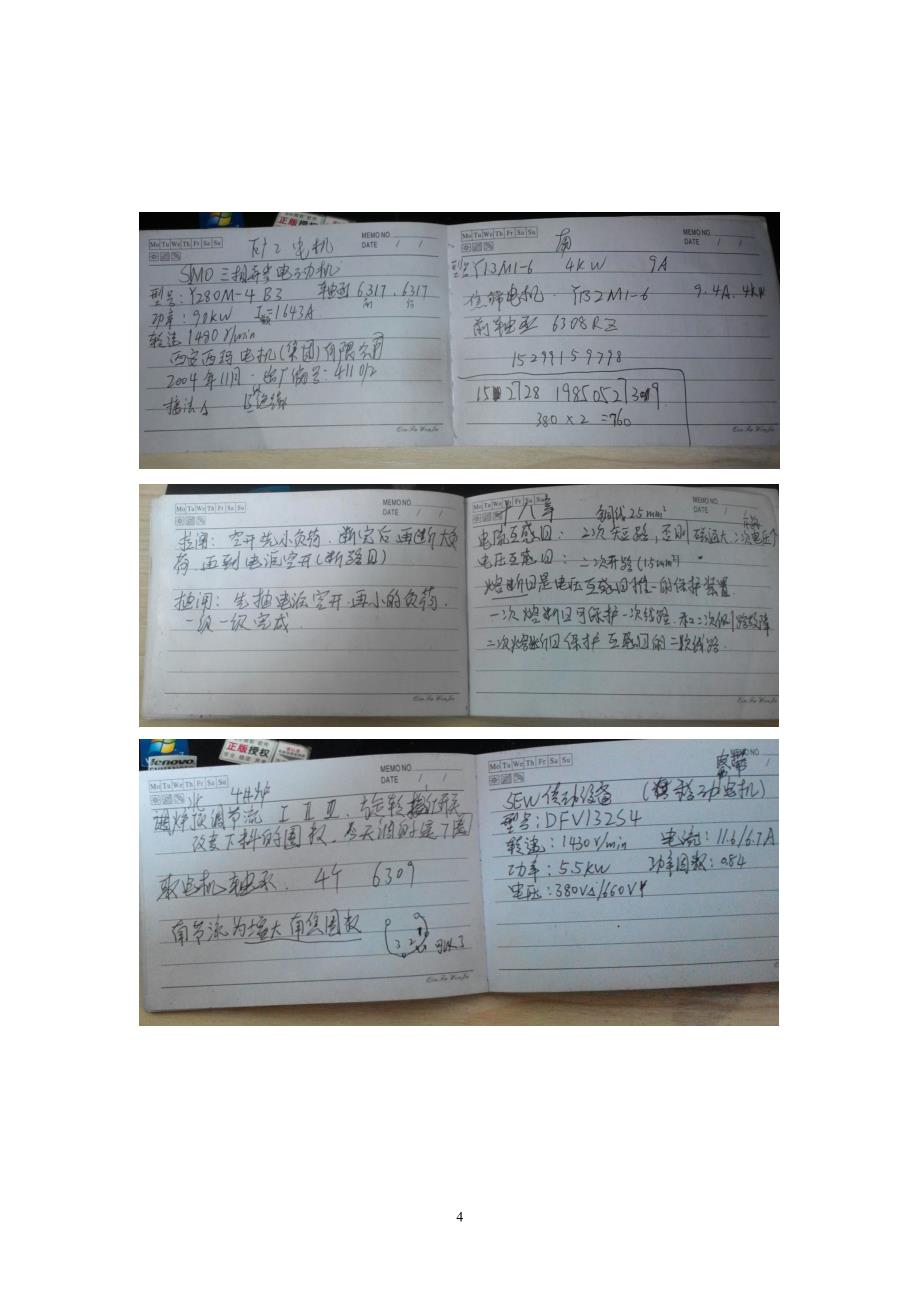 正版授权
Mo Tu We Th Fr Sa Su
MEMO NO.
DATE / /
电机
SIMO 三相异步电动机
型号:Y280M-4 B3 轴承 6317 . 6317
功率:90KW I =1643A
转速 1480 r/min
西安西玛电机(集团)有限公司
2004年11月·出厂编号:411012
接法 绝缘
Mo Tu We Th Fr Sa Su
MEMO NO.
DATE / /
南
型号 Y13M1-6 4KW 9A
筛电机. Y132M1-6 9.4A. 4KW
前轴承 6308RZ
15299159798
2728
380 × 2 =760
Mo Tu We Th Fr Sa Su
MEMO NO.
DATE / /
拉闸:空开先小负荷.断完后再断大负
荷.再到电源空开(断路口)
合闸:先 电源空开.再小的负荷.
一级一级完成.
MEMO NO.
DATE /
十八章 铜线2.5mm²
电流互感口:2次短路,否则 过大.二次电压
电压互感口:二次开路(1.5mm²)
熔断口是电压互感口唯一的保护装置
一次熔断口可保护一次线路.和二次侧 路故障
二次熔断口保护互感口的二次线路.
正版授权
lenovo
Mo Tu We Th Fr Sa Su
MEMO NO.
DATE / /
北 44炉
调节流 I II III. 开关
改变下料的圈数.今天调的是7圈
取电机轴承. 4个 6309
角节流为增大角焦圈数
3 2 1 可以了
Mo Tu We Th Fr Sa Su
NO.
SEW传动设备 (移动电机)
型号:DFV132S4
转速:1430r/min 电流:11.6/6.7A
功率:5.5kw 功率因数:0.84
电压:380VΔ/660VY
4